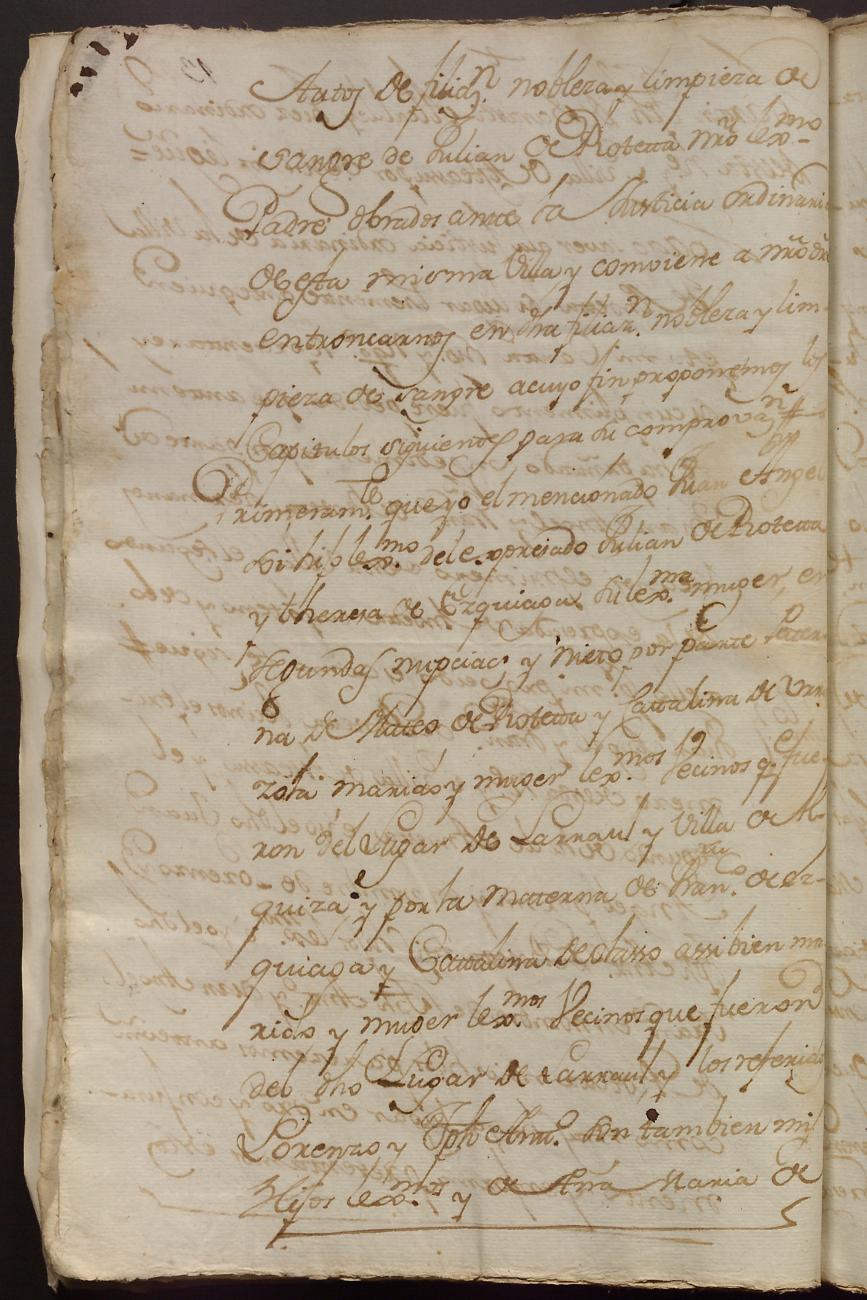 Autos de filiaz.n nobleza y limpieza de
Sangre de Julian de Rotetta nrõ lex.mo
Padre obrados ante la Justicia ordinaria
de esta misma Villa y combiene a nrõ drõ
entroncarnos en dha filiaz.n nobleza y lim-
pieza de Sangre acuyo fin proponemos los
Capitulos siguientes para su comprovaz.n
Primeram.te que yo el mencionado Juan Angel
soi hijo lex.mo del expresado Julian de Rotetta
y theresa de Erquiaga su lex.ma muger, en
segundas nupcias y Nieto por parte Pater-
na de Matteo de Rotetta y Cattalina de Yrar-
zola marido y muger lex.mos Vecinos q.e fue-
ron del Lugar de Larraul y Villa de Al-
quiza y por la materna de Fran.co de Er-
quiaga y Cattalina de olasso assi bien ma-
rido y muger lex.mos Vecinos que fueron
del dho Lugar de Larraul y los referidos
Lorenzo y Jph Antt.o son tambien mis
Hijos lex.mos y de Ana Maria de